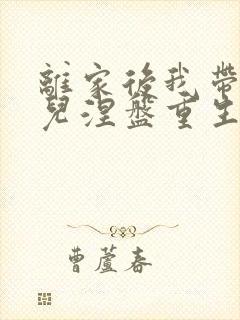 離家後我帶
兒涅盤重生
曹蘆春